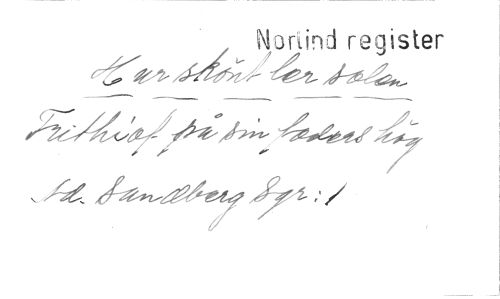 Norlind register
Hur skönt ler solen
Frithiof på sin faders hög
Ad. Sandberg Sgr: 1